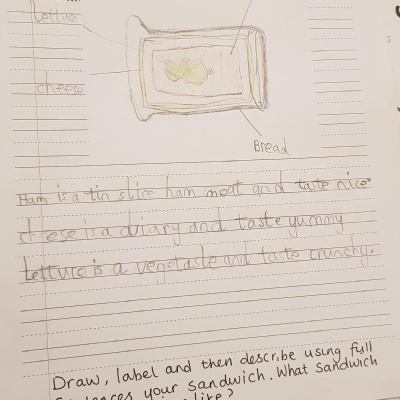 lettuce
cheese
Bread
Ham is a tin slice ham meat and taste nice.
cheese is a diary and taste yummy
Lettuce is a vegetasle and taste crunchy.
Draw, label and then describe using full
your sandwich. What sandwich
like?